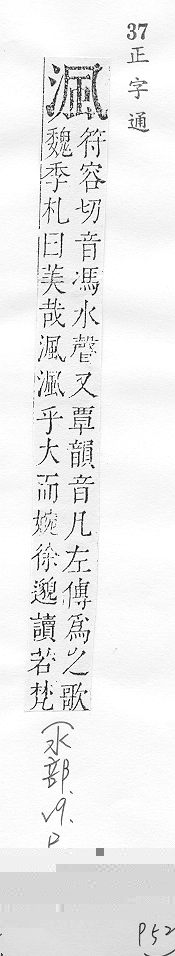 37
正字通
渢
符容切音馮水聲又覃韻音凡左傳為之歌
魏季札曰美哉渢渢乎大而婉徐邈讀若梵
(水部.v9.
P52